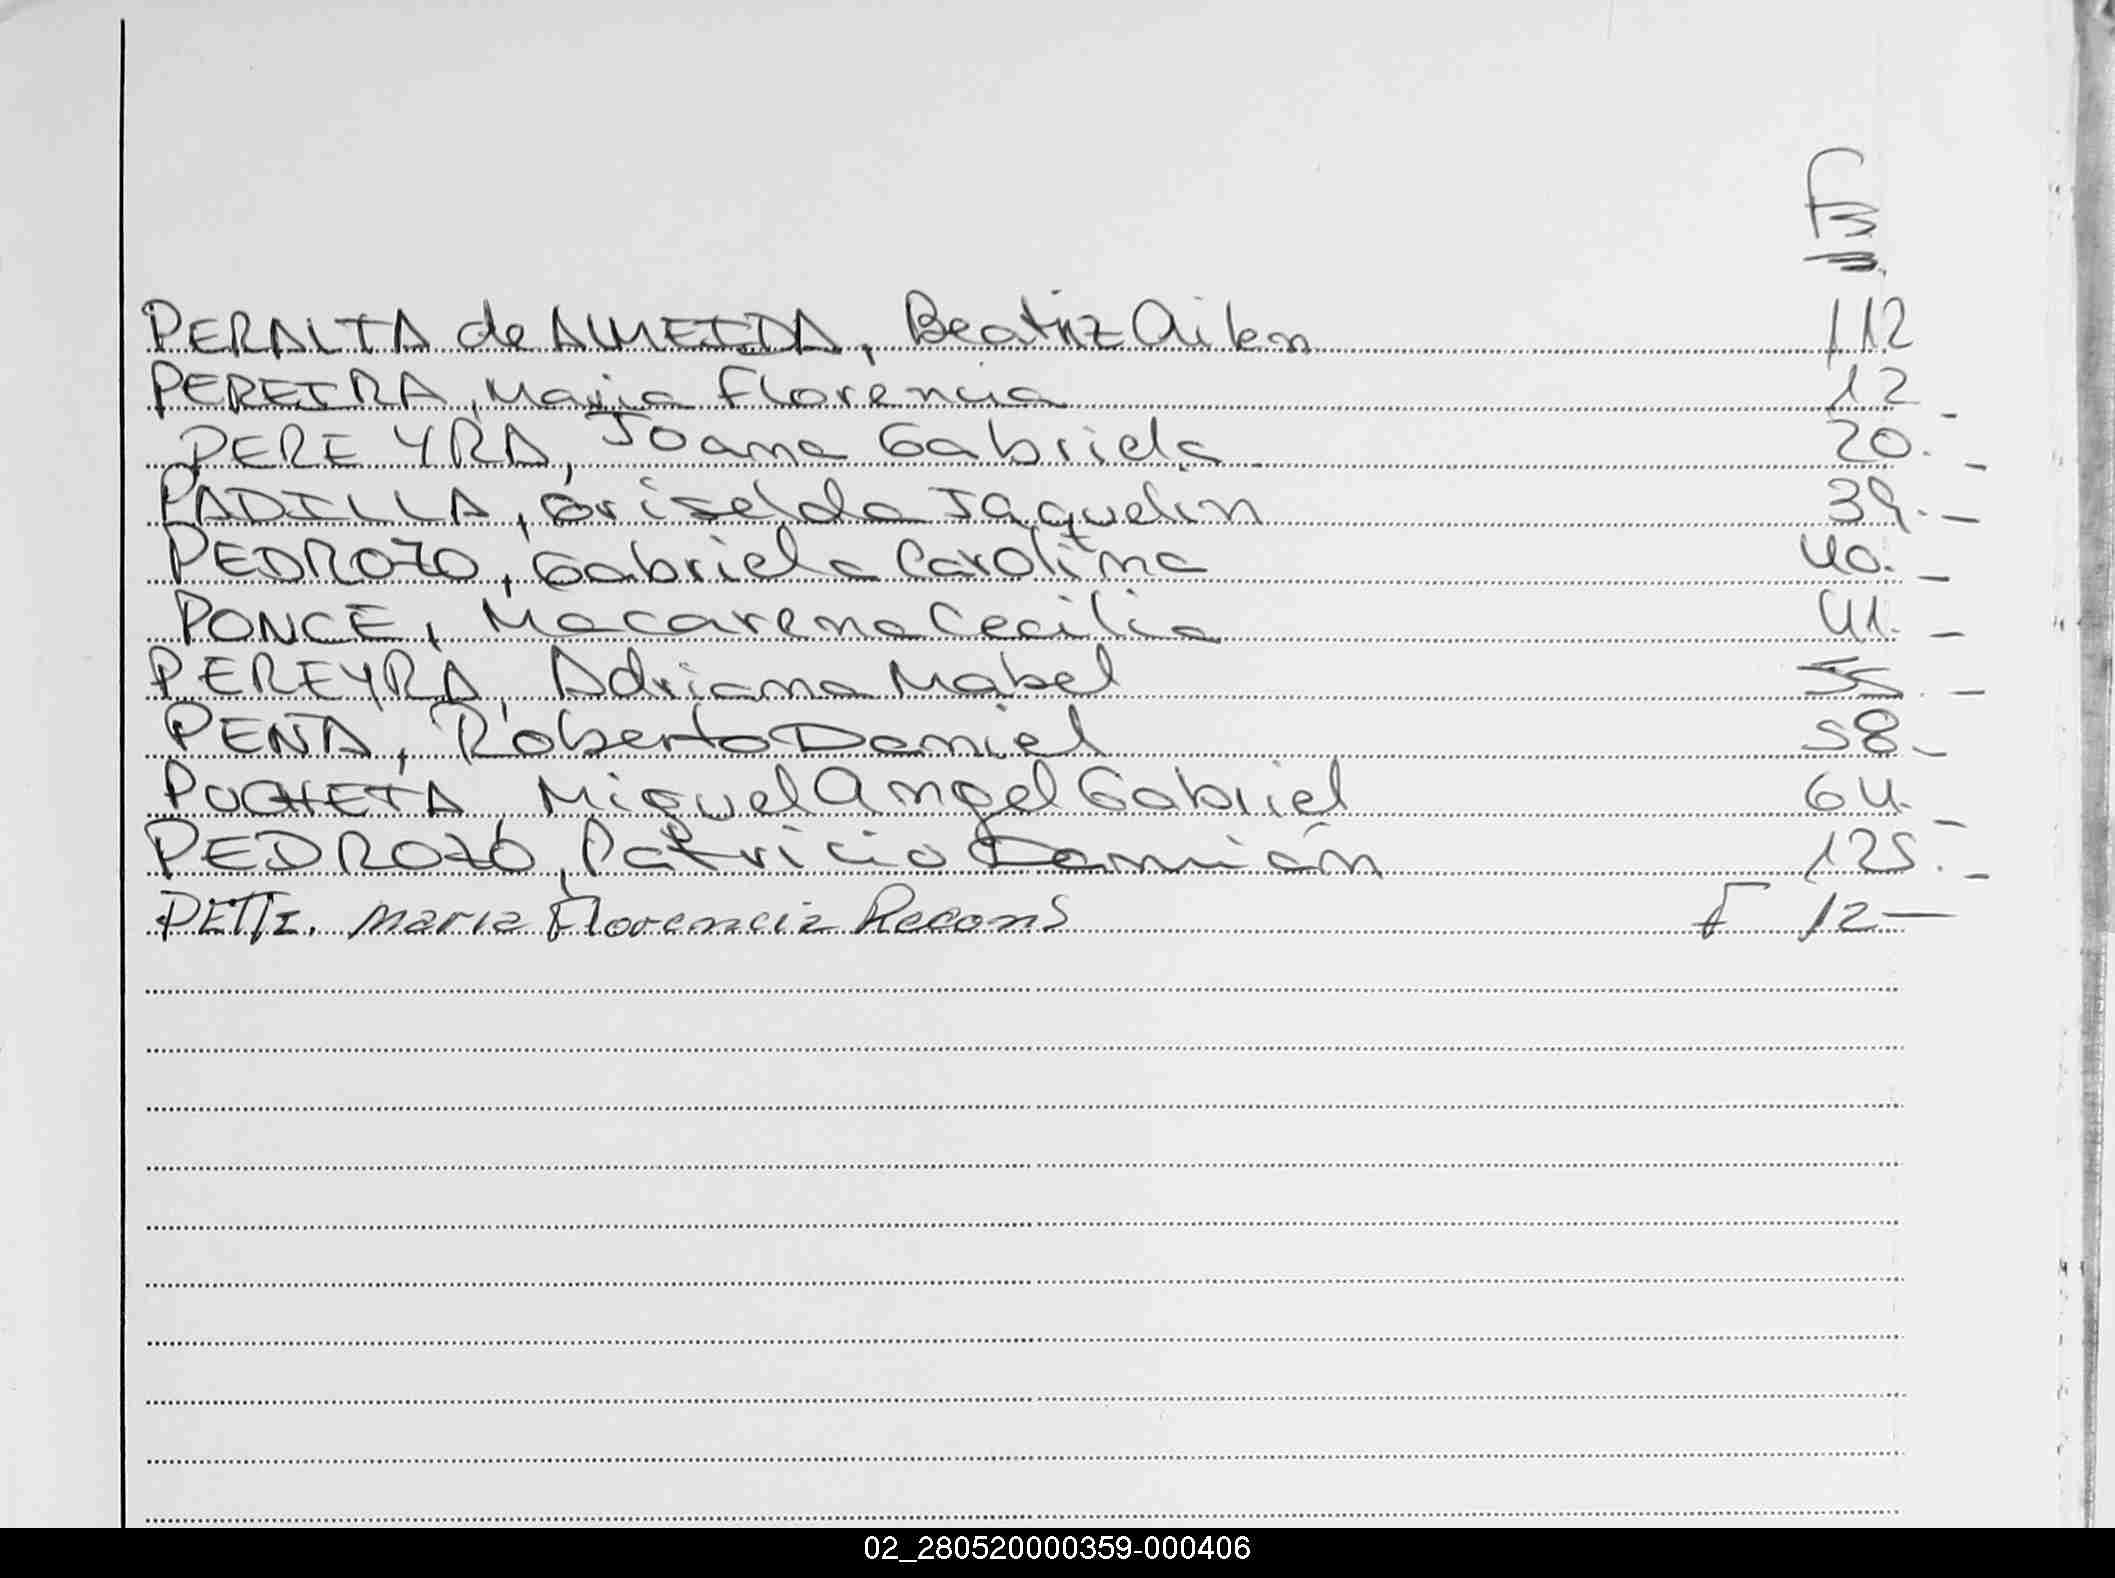 Fs
PERALTA de ALMEIDA, Beatriz Ailen 112
PEREIRA, Maria Florencia 12_
PEREYRA, Joana Gabriela 20._
PADILLA, Griselda Jaquelin 39._
PEDROZO, Gabriela Carolina 40._
PONCE, Macarena Cecilia 41._
PEREYRA, Adriana Mabel 55._
PEÑA, Roberto Daniel 58_
PUCHETA Miguel Angel Gabriel 64._
PEDROZO, Patricio Damián 125._
PETTI. Maria Florencia Recons F 12_
02_280520000359-000406